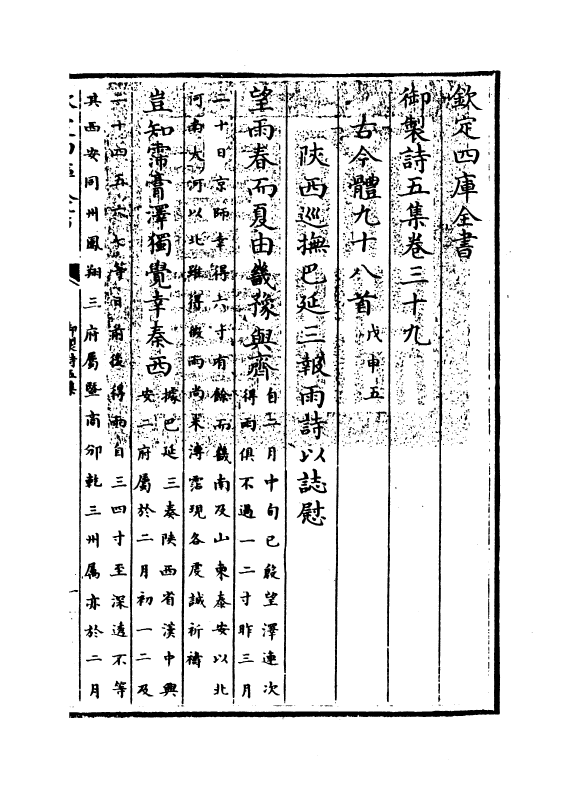 欽定四庫全書
御製詩五集卷三十九
古今體九十八首戊申五
陝西巡撫巴延三報雨詩以誌慰
望雨春而夏由畿豫與齊自二月中旬已殷望澤連次
得雨俱不過一二寸昨三月
二十日京師幸得六寸有餘而畿南及山東泰安以北
河南大河以北雖得微雨尚未溥霑現各虔誠祈禱
豈知霈膏澤獨覺幸秦西據巴延三奏陝西省漢中興
安二府屬於二月初一二及
二十四五六七等日前後得雨自三四寸至深透不等
其西安同州鳳翔三府屬暨商邠乾三州屬亦於二月
御製詩五集